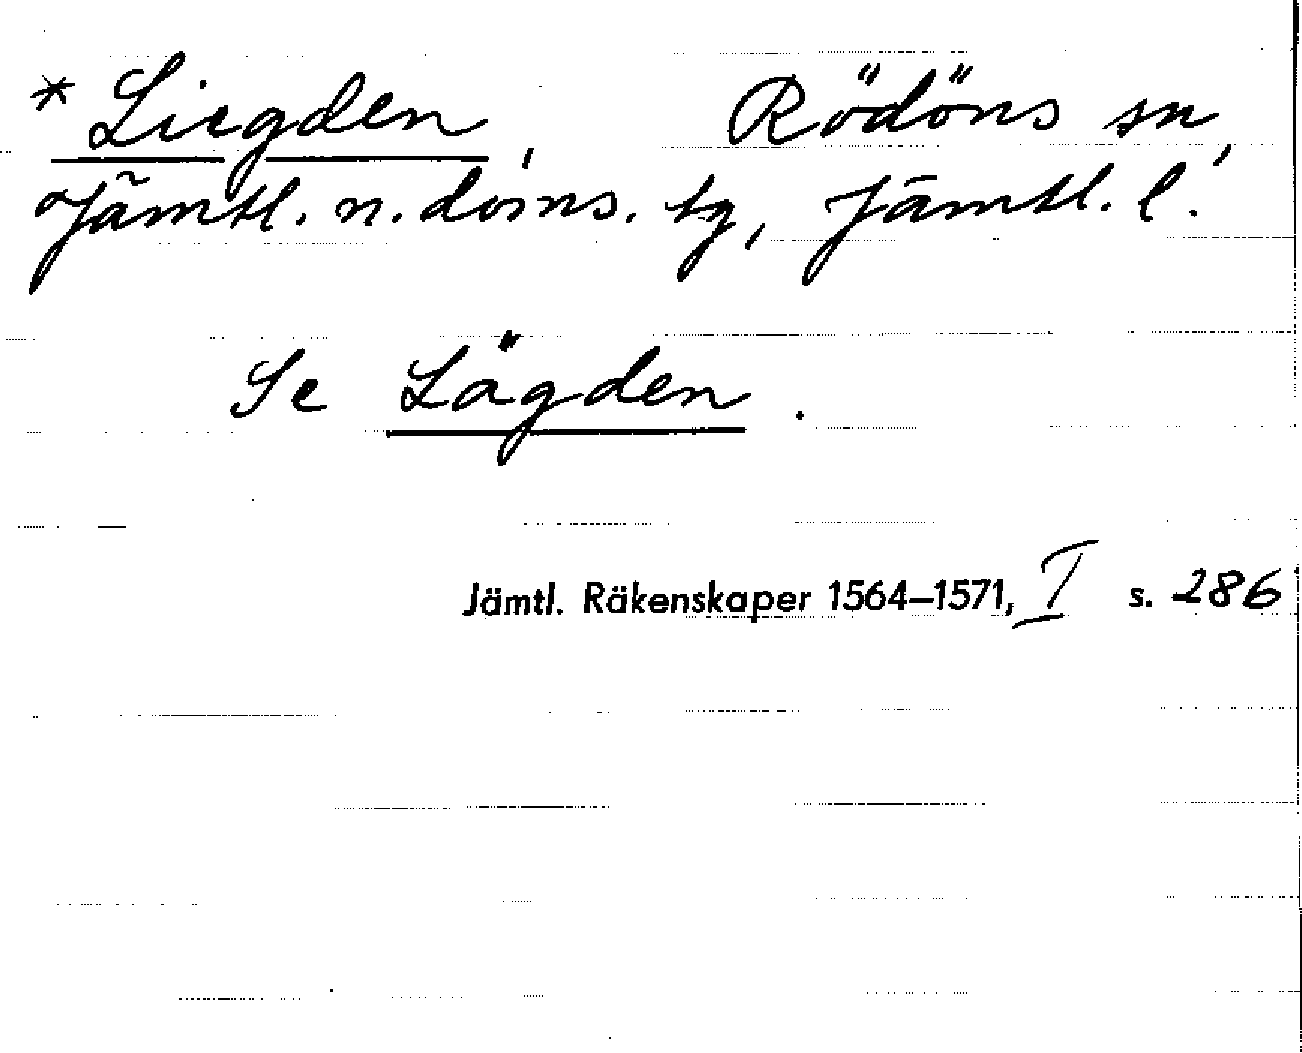 * Liegden, Rödöns sn,
Jämtl. n. doms. tg, Jämtl. l.
Se Lägden.
Jämtl. Räkenskaper 1564–1571, I s. 286